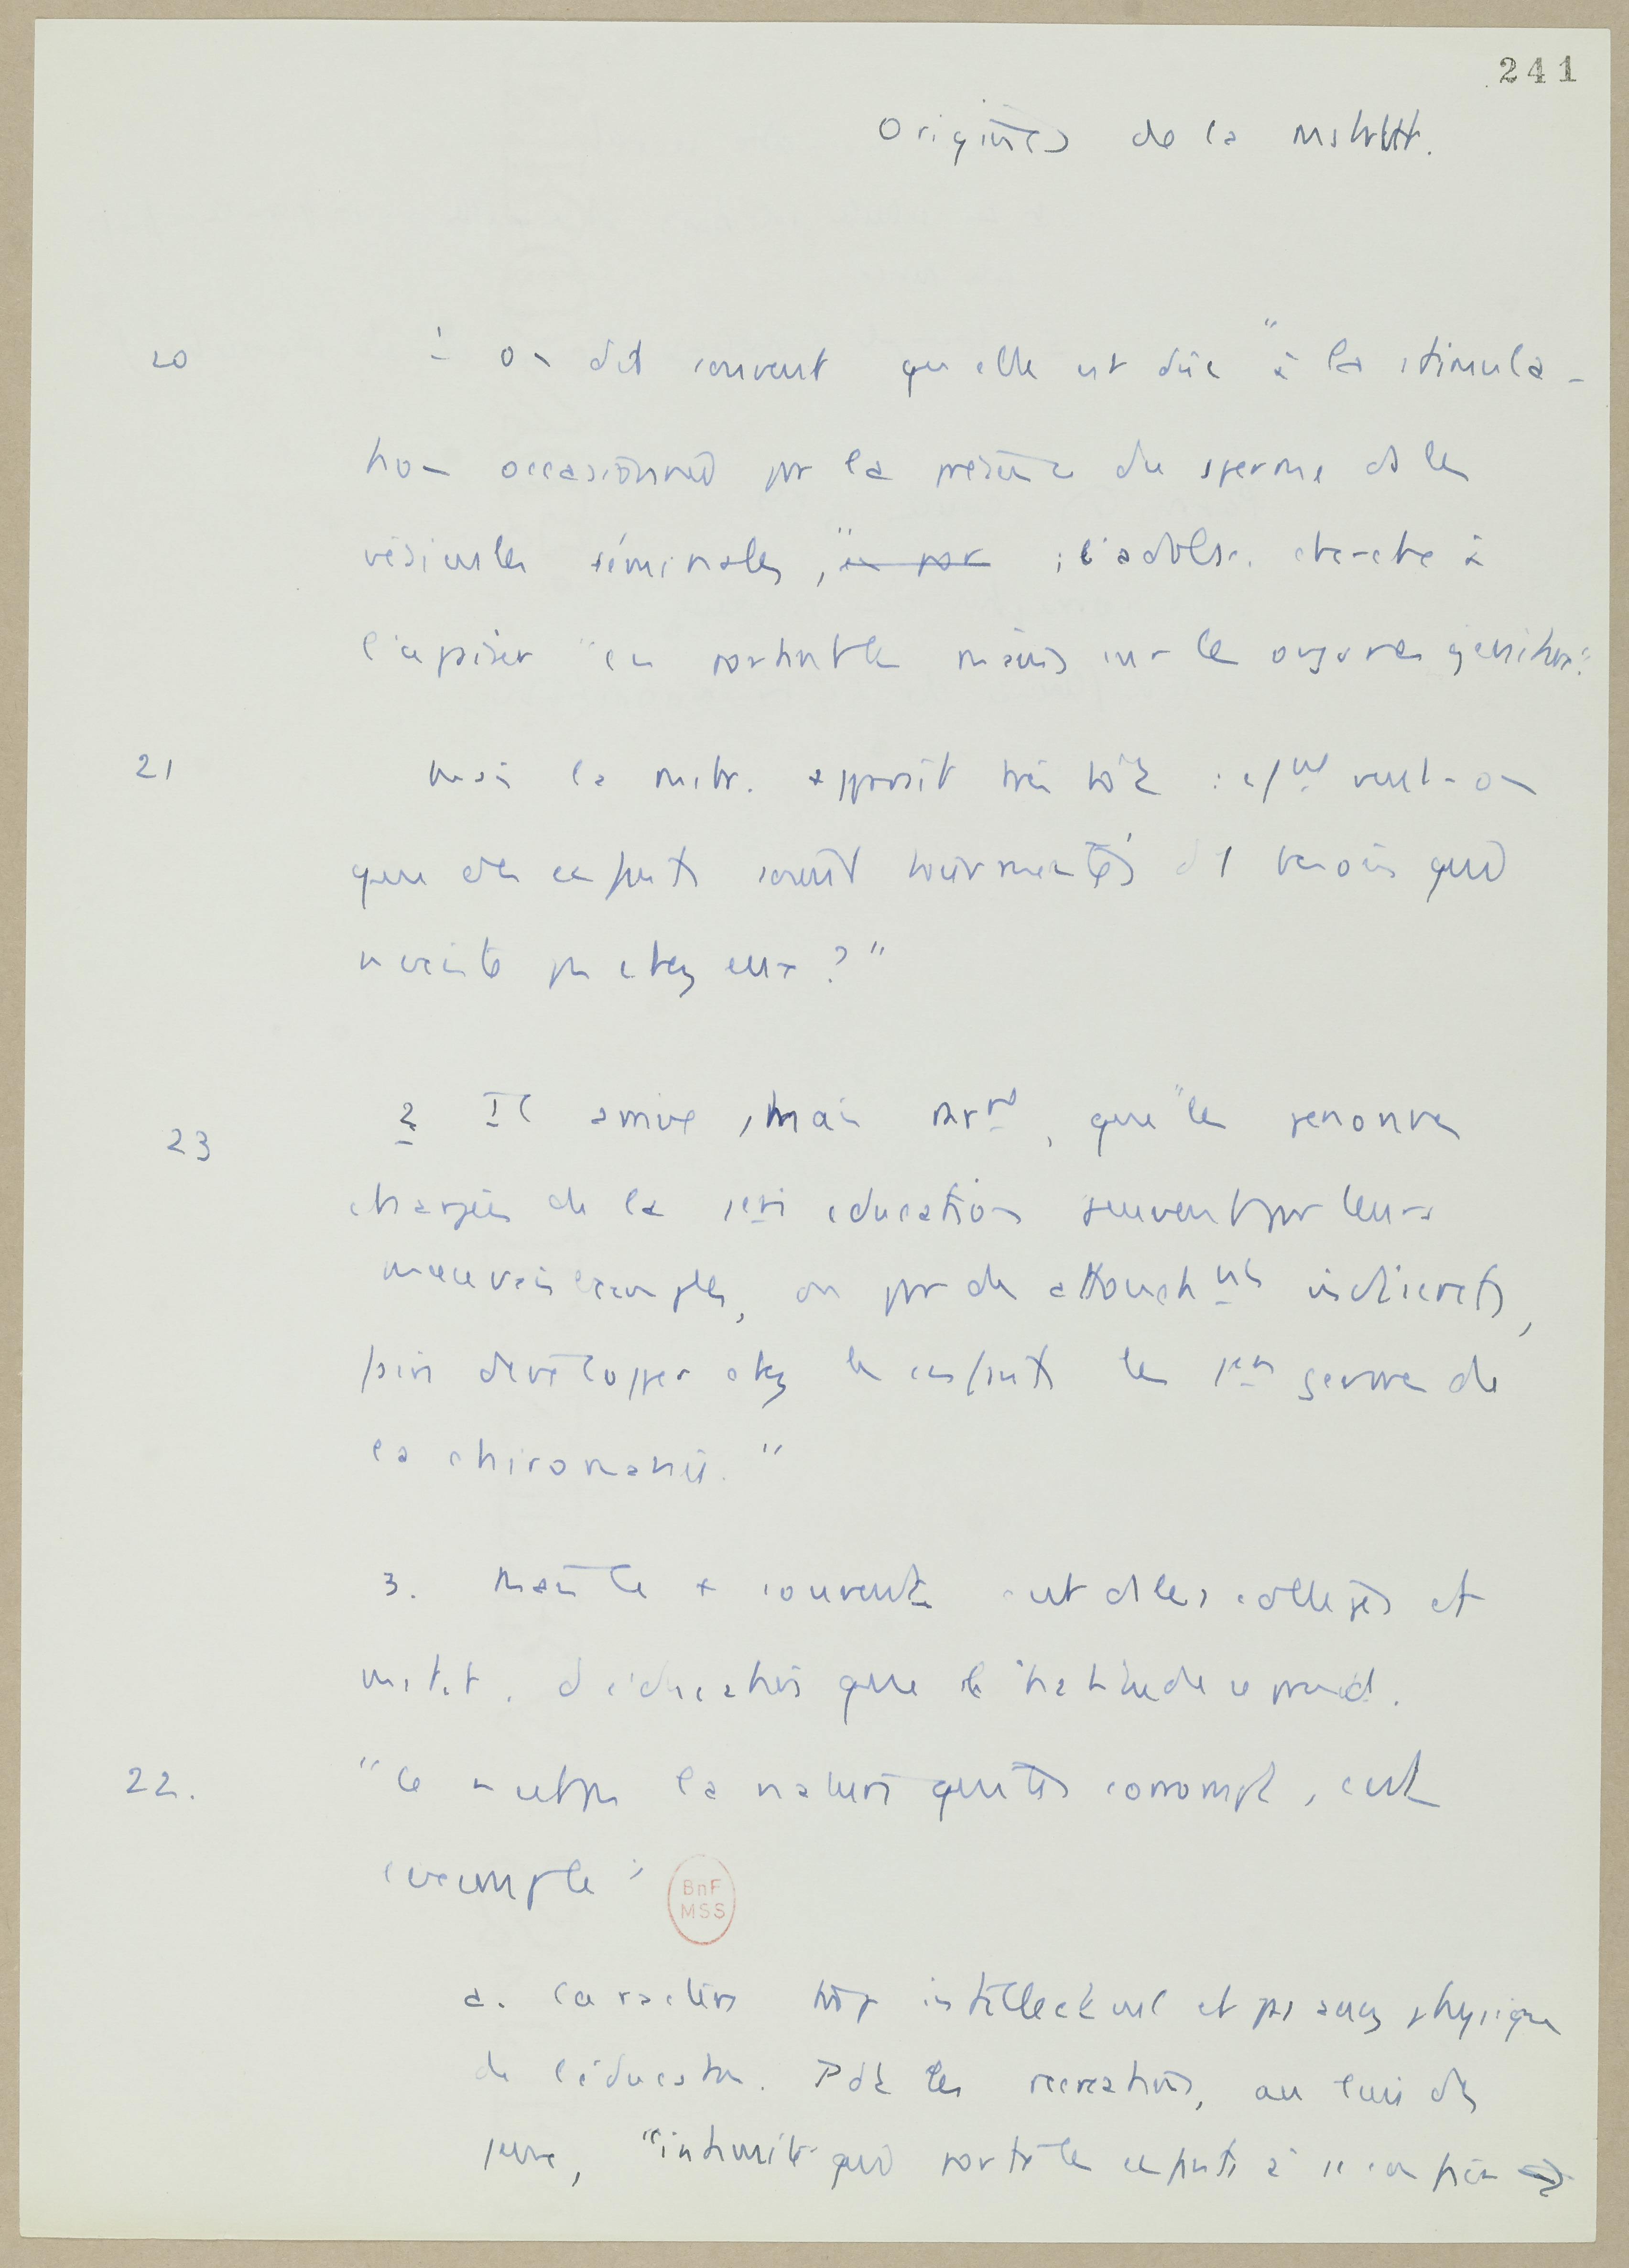 241
Origines de la mstbtt.
20 1 On dit souvent qu elle est dûe "à la stimula-
tion occasionnée par la présence du sperme ds les
vésicules séminales," en par ; l'adolsc. cherche à
l'apaiser "en portant les mains sur les organes génitaux".
21 Mais la mstb. apparaît très tôt : "cmt veut-on
que des enfants soient tourmentés d 1 besoin qui
n existe pas chez eux ? "
23 2 Il arrive, mais rart, que "les personnes
chargées de la 1ere éducation peuvent par leurs
mauvais exemples, ou par des attouchts indiscrets,
faire développer chez les enfants les 1ers germes de
la chiromanie. "
3. Mais le + souvent c'est ds les collèges et
instit. d'éducation que l'habitude se prend.
22. "Ce n est pas la nature qui les corrompt, c'est
l'exemple"
BnF
MSS
a. Caractère trop intellectuel et pas assez physique
de l'éducation. Pdt les récréations, au lieu des
jeux, "intimité qui porte les enfants à se confier →